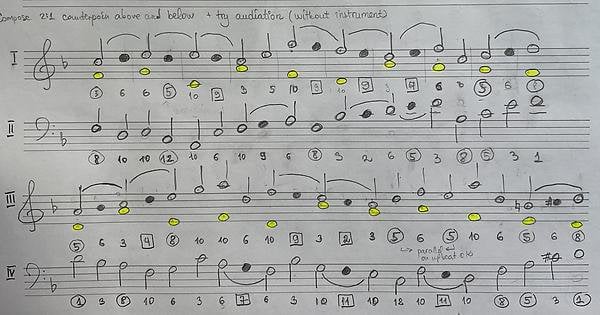 Compose 2:1 counterpoint above and below + try audiation (without instrument)
I
3 6 6 5 10 9 3 5 10 3 10 9 3 6 5 6 8
II
8 10 10 12 10 6 10 9 6 8 3 2 6 5 3 8 5 3 1
III
5 6 3 4 8 10 10 6 10 9 3 2 3 5 6 5 10 6 5 6 8
→ parallel ←
on upbeat ok
IV
1 3 8 10 6 3 6 7 6 3 10 11 10 12 10 11 10 8 5 3 1